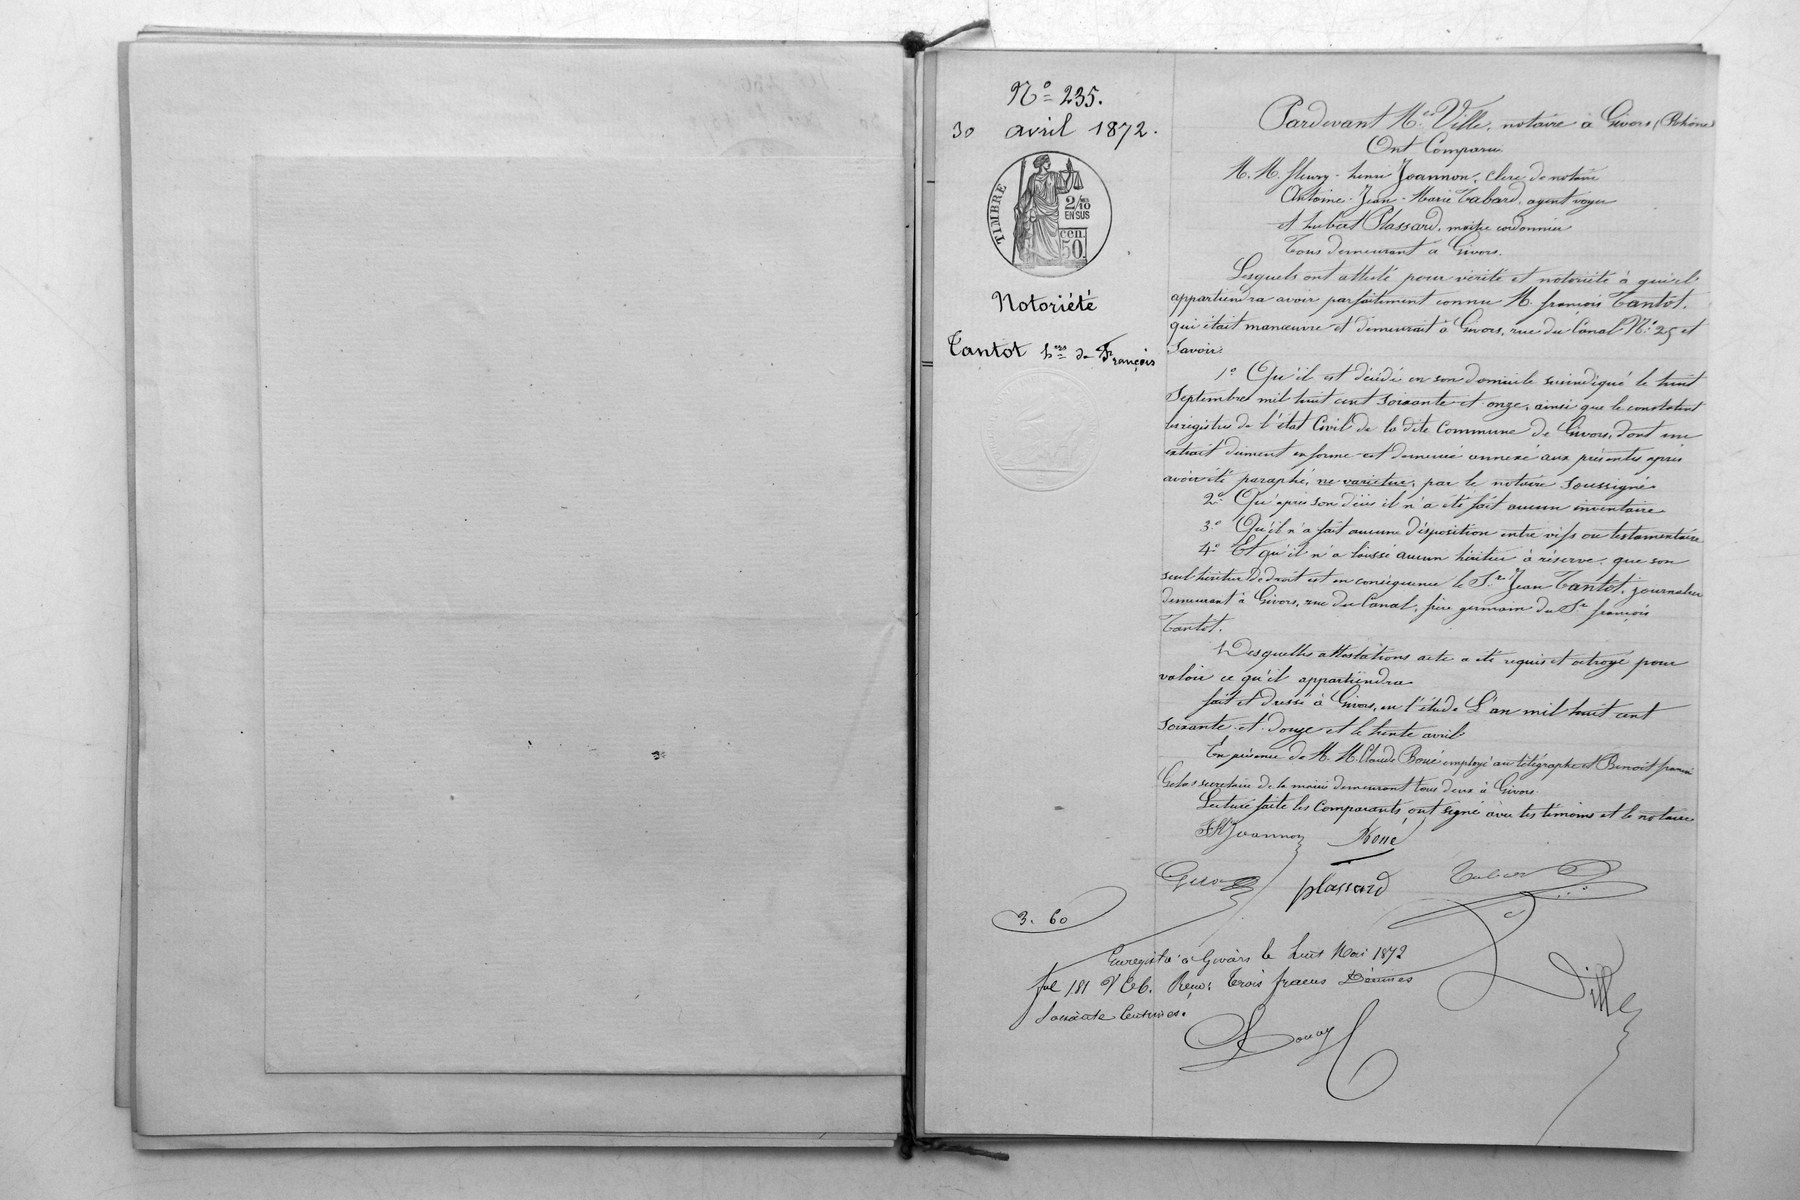 N° 235.
30 avril 1872.
TIMBRE
2/10
EN SUS
50 cen.
Notoriété
Tantot hers de François
Pardevant Me Ville, notaire à Givors (Rhône)
Ont Comparu
M. M. fleury-henri Joannon, clerc de notaire
Antoine-Jean-Marie Tabard, agent voyer
et hubert Plassard, maître cordonnier
Tous demeurant à Givors.
Lesquels ont attesté pour vérité et notoriété à qui il
appartiendra avoir parfaitement connu M. françois Tantot,
qui était manœuvre et demeurait à Givors, rue du Canal N° 25 et
Savoir:
1° Qu'il est décédé en son domicile susindiqué le huit
Septembre mil huit cent soixante et onze, ainsi que le constatent
les registres de l'état Civil de la dite Commune de Givors, dont un
extrait dument en forme est demeuré annexé aux présentes après
avoir été paraphé, ne varietur, par le notaire soussigné
2° Qu'après son décès il n'a été fait aucun inventaire
3° Qu'il n'a fait aucune disposition entre vifs ou testamentaire
4° Et qu'il n'a laissé aucun héritier à réserve, que son
seul héritier de droit est en conséquence le Sr Jean Tantot, journalier
demeurant à Givors, rue du Canal, frère germain du Sr françois
Tantot.
Desquelles attestations acte a été requis et octroyé pour
valoir ce qu'il appartiendra
fait et dressé à Givors, en l'étude L'an mil huit cent
soixante-et-douze et le trente avril
En présence de M. M. Claude Boué employé au télégraphe et Benoit françois
secrétaire de la mairie demeurant tous deux à Givors
Lecture faite les Comparants ont signé avec les témoins et le notaire
Joannon Boué
plassard Tabard
3. 60
Enregistré à Givors le huit Mai 1872
fol 181 V C 6. Reçu: trois francs Décimes
soixante Centimes.
Ville